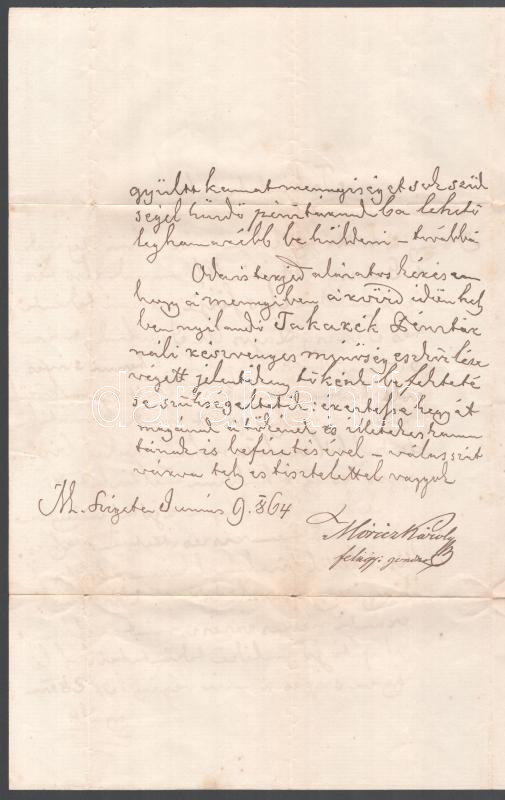 gyültt kamat mennyiséget sok szük
ségel küzdő pénztárunkba lehető
leghamarébb beküldeni – továbbá
Oda is terjed alázatos kérésem
hogy a mennyiben a rövid időn hely
ben nyilandó Takarék Pénztár
náli részvényes minőség eszközlése
végett jelentékeny tőkénk befekteté
se szükségeltetik:
magunk a tőkének és illetékes kama
tának is befizetésével – válaszát
várva teljes tisztelettel vagyok
M. Szigeten Junius 9. 864
Móricz Károly
felügy. gondno